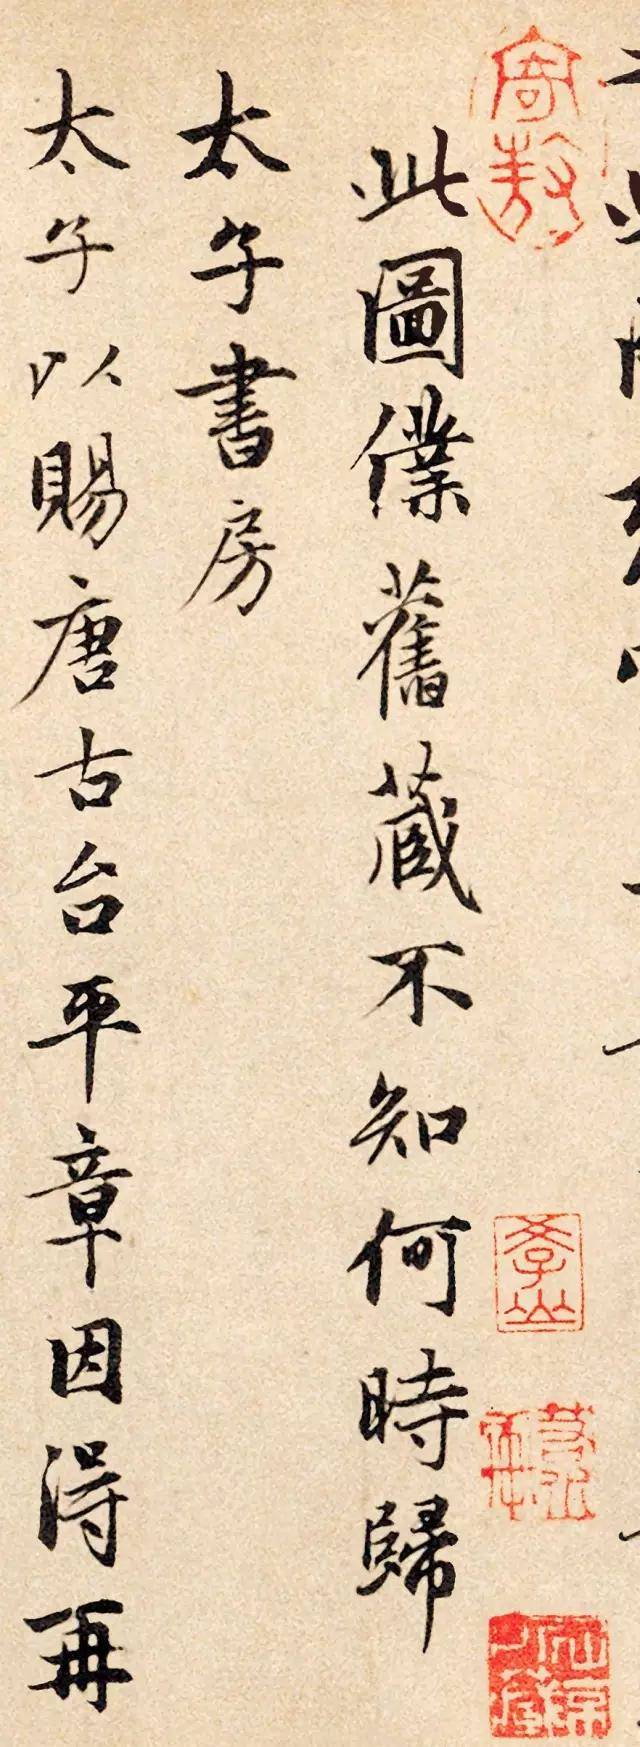 此圖僕舊蔵不知何時歸
太子書房
太子以賜唐古台平章因得再